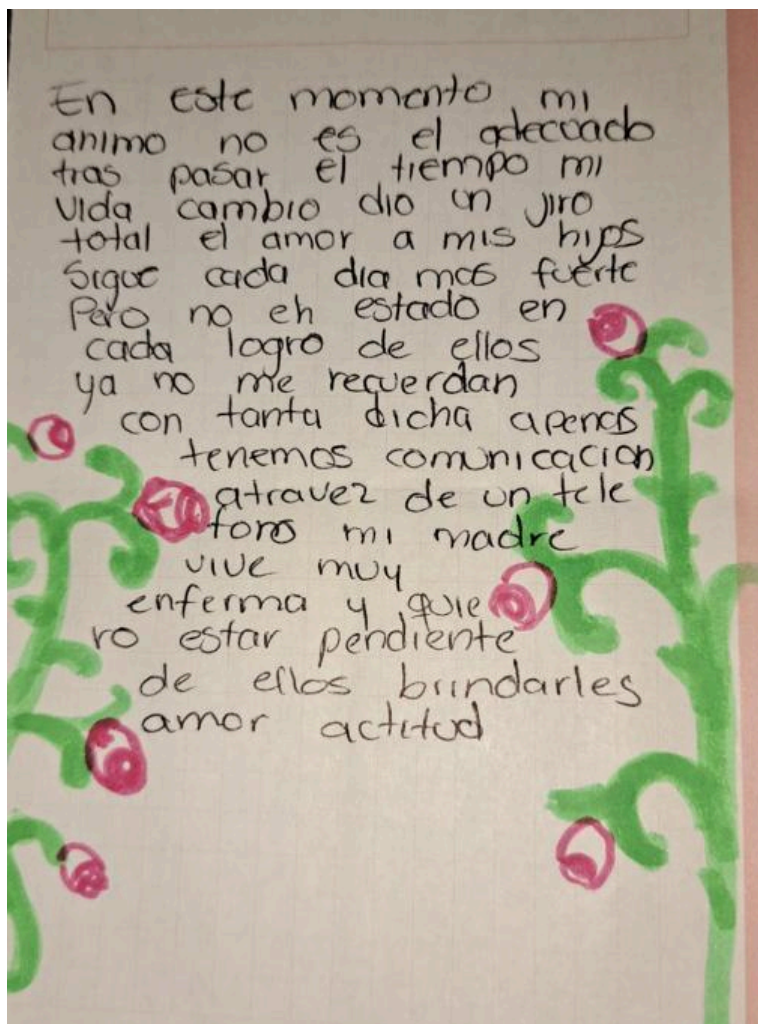 En este momento mi
animo no es el adecuado
tras pasar el tiempo mi
vida cambio dio un jiro
total el amor a mis hijos
sigue cada dia mas fuerte
Pero no eh estado en
cada logro de ellos
ya no me recuerdan
con tanta dicha apenas
tenemos comunicacion
atravez de un tele
fono mi madre
vive muy
enferma y quie
ro estar pendiente
de ellos brindarles
amor actitud